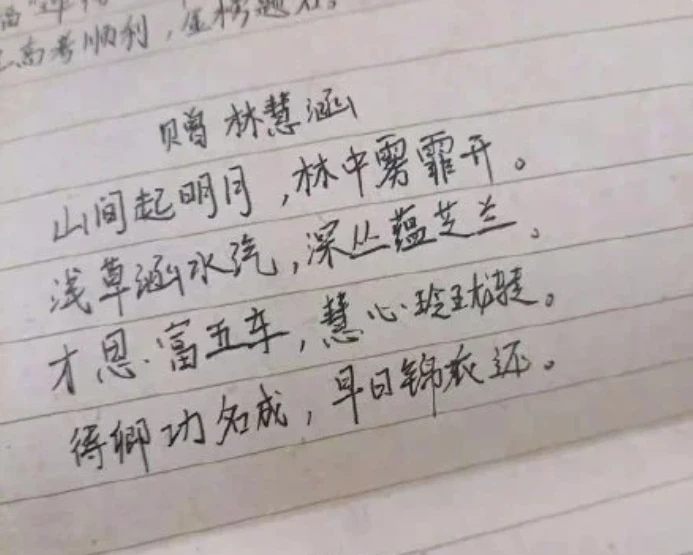 高考顺利，金榜题名。
赠 林慧涵
山间起明月，林中雾霏开。
浅草涵水汽，深丛蕴芝兰。
才思富五车，慧心玲珑。
得卿功名成，早日锦衣还。